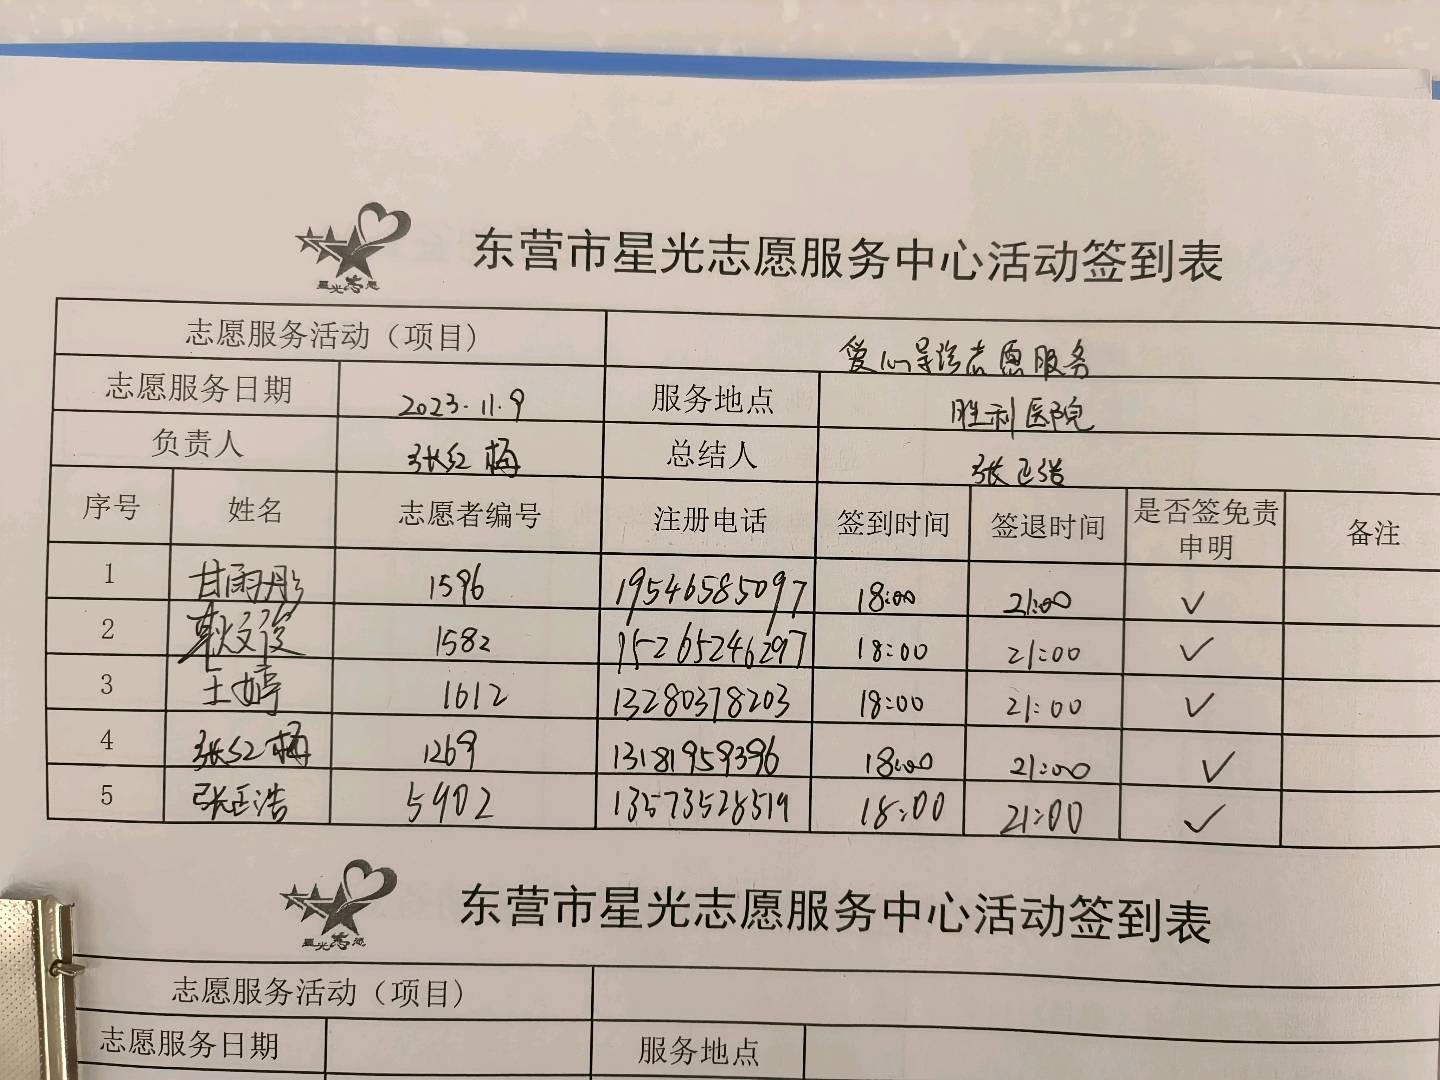 星光志愿
东营市星光志愿服务中心活动签到表
志愿服务活动（项目） 爱心导诊志愿服务
志愿服务日期 2023.11.9 服务地点 胜利医院
负责人 张红梅 总结人 张正浩
序号 姓名 志愿者编号 注册电话 签到时间 签退时间 是否签免责申明 备注
1 甘雨彤 1596 19546585097 18:00 21:00 ✓
2 文俊 1582 15265246297 18:00 21:00 ✓
3 王婷 1612 13280378203 18:00 21:00 ✓
4 张红梅 1269 13181959396 18:00 21:00 ✓
5 张正浩 5902 13573528519 18:00 21:00 ✓
星光志愿
东营市星光志愿服务中心活动签到表
志愿服务活动（项目）
志愿服务日期 服务地点